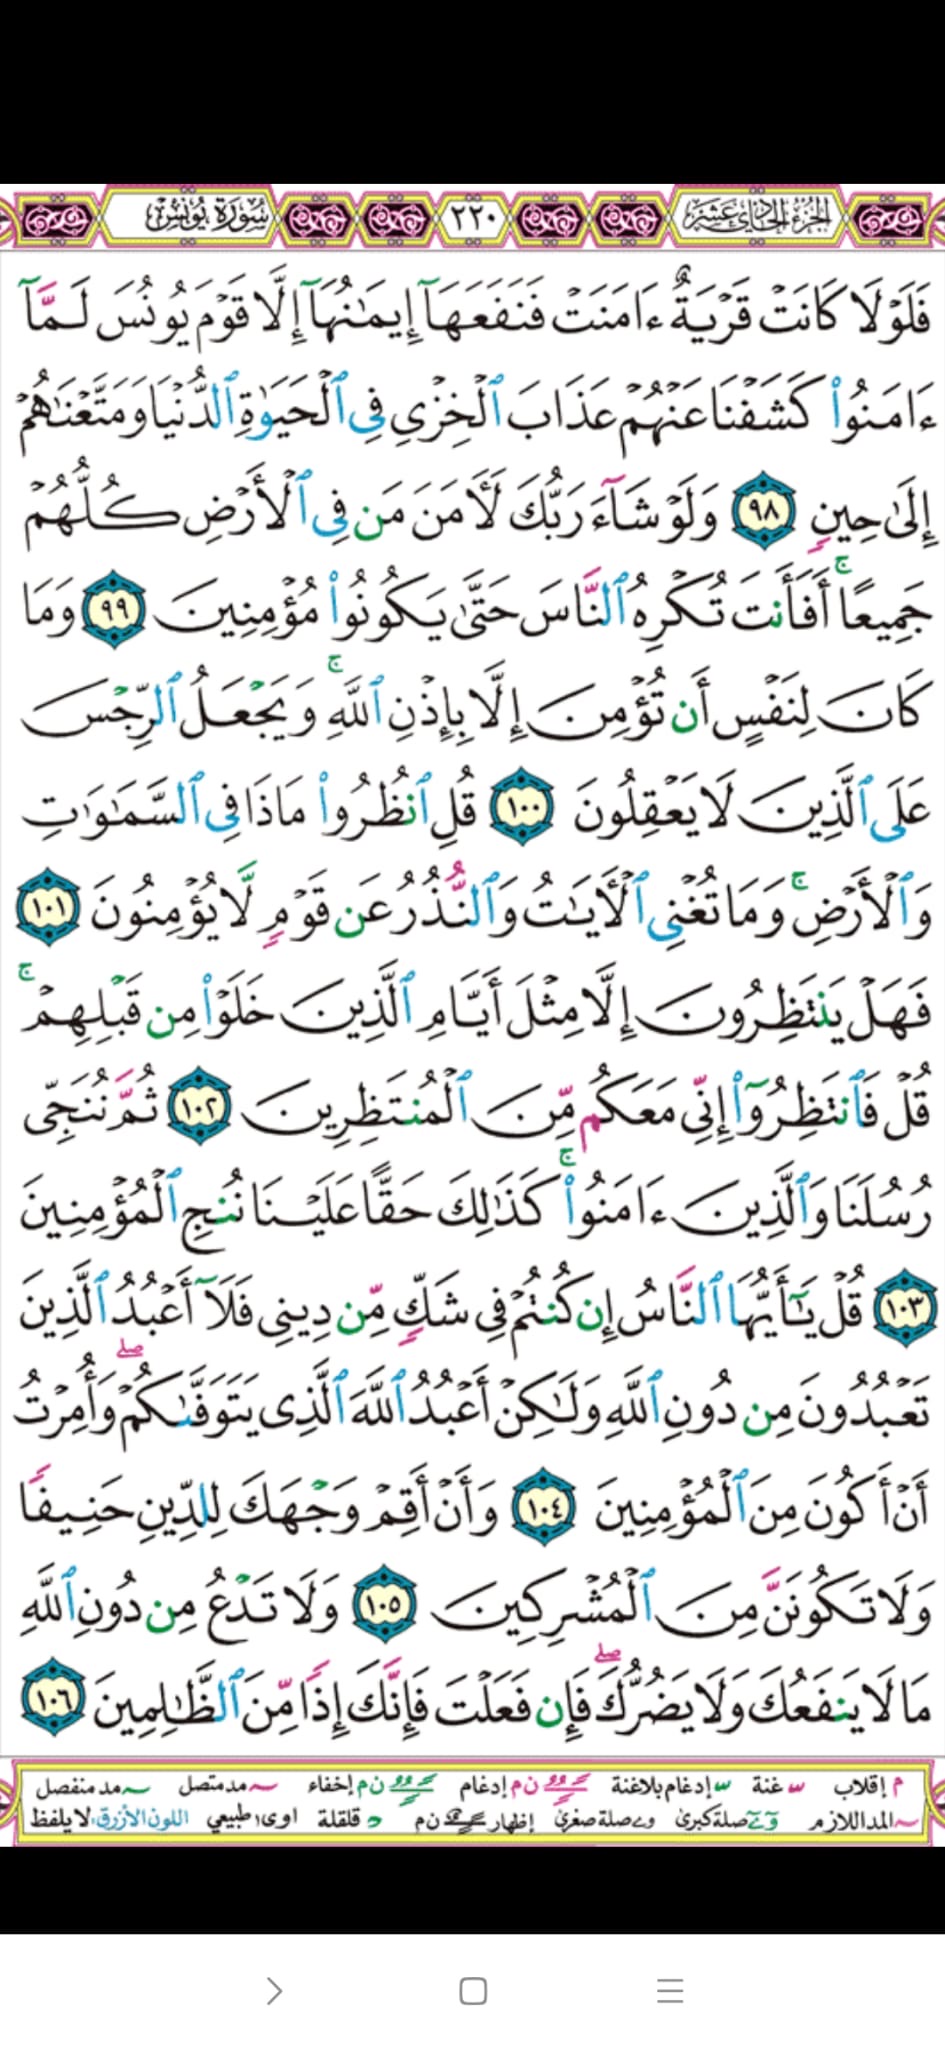 الجزء الحادي عشر ٢٢٠ سورة يونس
فَلَوْلَا كَانَتْ قَرْيَةٌ ءَامَنَتْ فَنَفَعَهَآ إِيمَٰنُهَآ إِلَّا قَوْمَ يُونُسَ لَمَّآ
ءَامَنُوا۟ كَشَفْنَا عَنْهُمْ عَذَابَ ٱلْخِزْىِ فِى ٱلْحَيَوٰةِ ٱلدُّنْيَا وَمَتَّعْنَٰهُمْ
إِلَىٰ حِينٍ ٩٨ وَلَوْ شَآءَ رَبُّكَ لَءَامَنَ مَن فِى ٱلْأَرْضِ كُلُّهُمْ
جَمِيعًا ۚ أَفَأَنتَ تُكْرِهُ ٱلنَّاسَ حَتَّىٰ يَكُونُوا۟ مُؤْمِنِينَ ٩٩ وَمَا
كَانَ لِنَفْسٍ أَن تُؤْمِنَ إِلَّا بِإِذْنِ ٱللَّهِ ۚ وَيَجْعَلُ ٱلرِّجْسَ
عَلَى ٱلَّذِينَ لَا يَعْقِلُونَ ١٠٠ قُلِ ٱنظُرُوا۟ مَاذَا فِى ٱلسَّمَٰوَٰتِ
وَٱلْأَرْضِ ۚ وَمَا تُغْنِى ٱلْءَايَٰتُ وَٱلنُّذُرُ عَن قَوْمٍ لَّا يُؤْمِنُونَ ١٠١
فَهَلْ يَنتَظِرُونَ إِلَّا مِثْلَ أَيَّامِ ٱلَّذِينَ خَلَوْا۟ مِن قَبْلِهِمْ ۚ
قُلْ فَٱنتَظِرُوٓا۟ إِنِّى مَعَكُم مِّنَ ٱلْمُنتَظِرِينَ ١٠٢ ثُمَّ نُنَجِّى
رُسُلَنَا وَٱلَّذِينَ ءَامَنُوا۟ ۚ كَذَٰلِكَ حَقًّا عَلَيْنَا نُنجِ ٱلْمُؤْمِنِينَ
١٠٣ قُلْ يَٰٓأَيُّهَا ٱلنَّاسُ إِن كُنتُمْ فِى شَكٍّ مِّن دِينِى فَلَآ أَعْبُدُ ٱلَّذِينَ
تَعْبُدُونَ مِن دُونِ ٱللَّهِ وَلَٰكِنْ أَعْبُدُ ٱللَّهَ ٱلَّذِى يَتَوَفَّىٰكُمْ ۖ وَأُمِرْتُ
أَنْ أَكُونَ مِنَ ٱلْمُؤْمِنِينَ ١٠٤ وَأَنْ أَقِمْ وَجْهَكَ لِلدِّينِ حَنِيفًا
وَلَا تَكُونَنَّ مِنَ ٱلْمُشْرِكِينَ ١٠٥ وَلَا تَدْعُ مِن دُونِ ٱللَّهِ
مَا لَا يَنفَعُكَ وَلَا يَضُرُّكَ ۖ فَإِن فَعَلْتَ فَإِنَّكَ إِذًا مِّنَ ٱلظَّٰلِمِينَ ١٠٦
م إقلاب غنة إدغام بلاغنة ن م إدغام ن م إخفاء مد متصل مد منفصل
المد اللازم صلة كبرى صلة صغرى إظهار ن م قلقلة اوى طبيعي اللون الأزرق: لا يلفظ